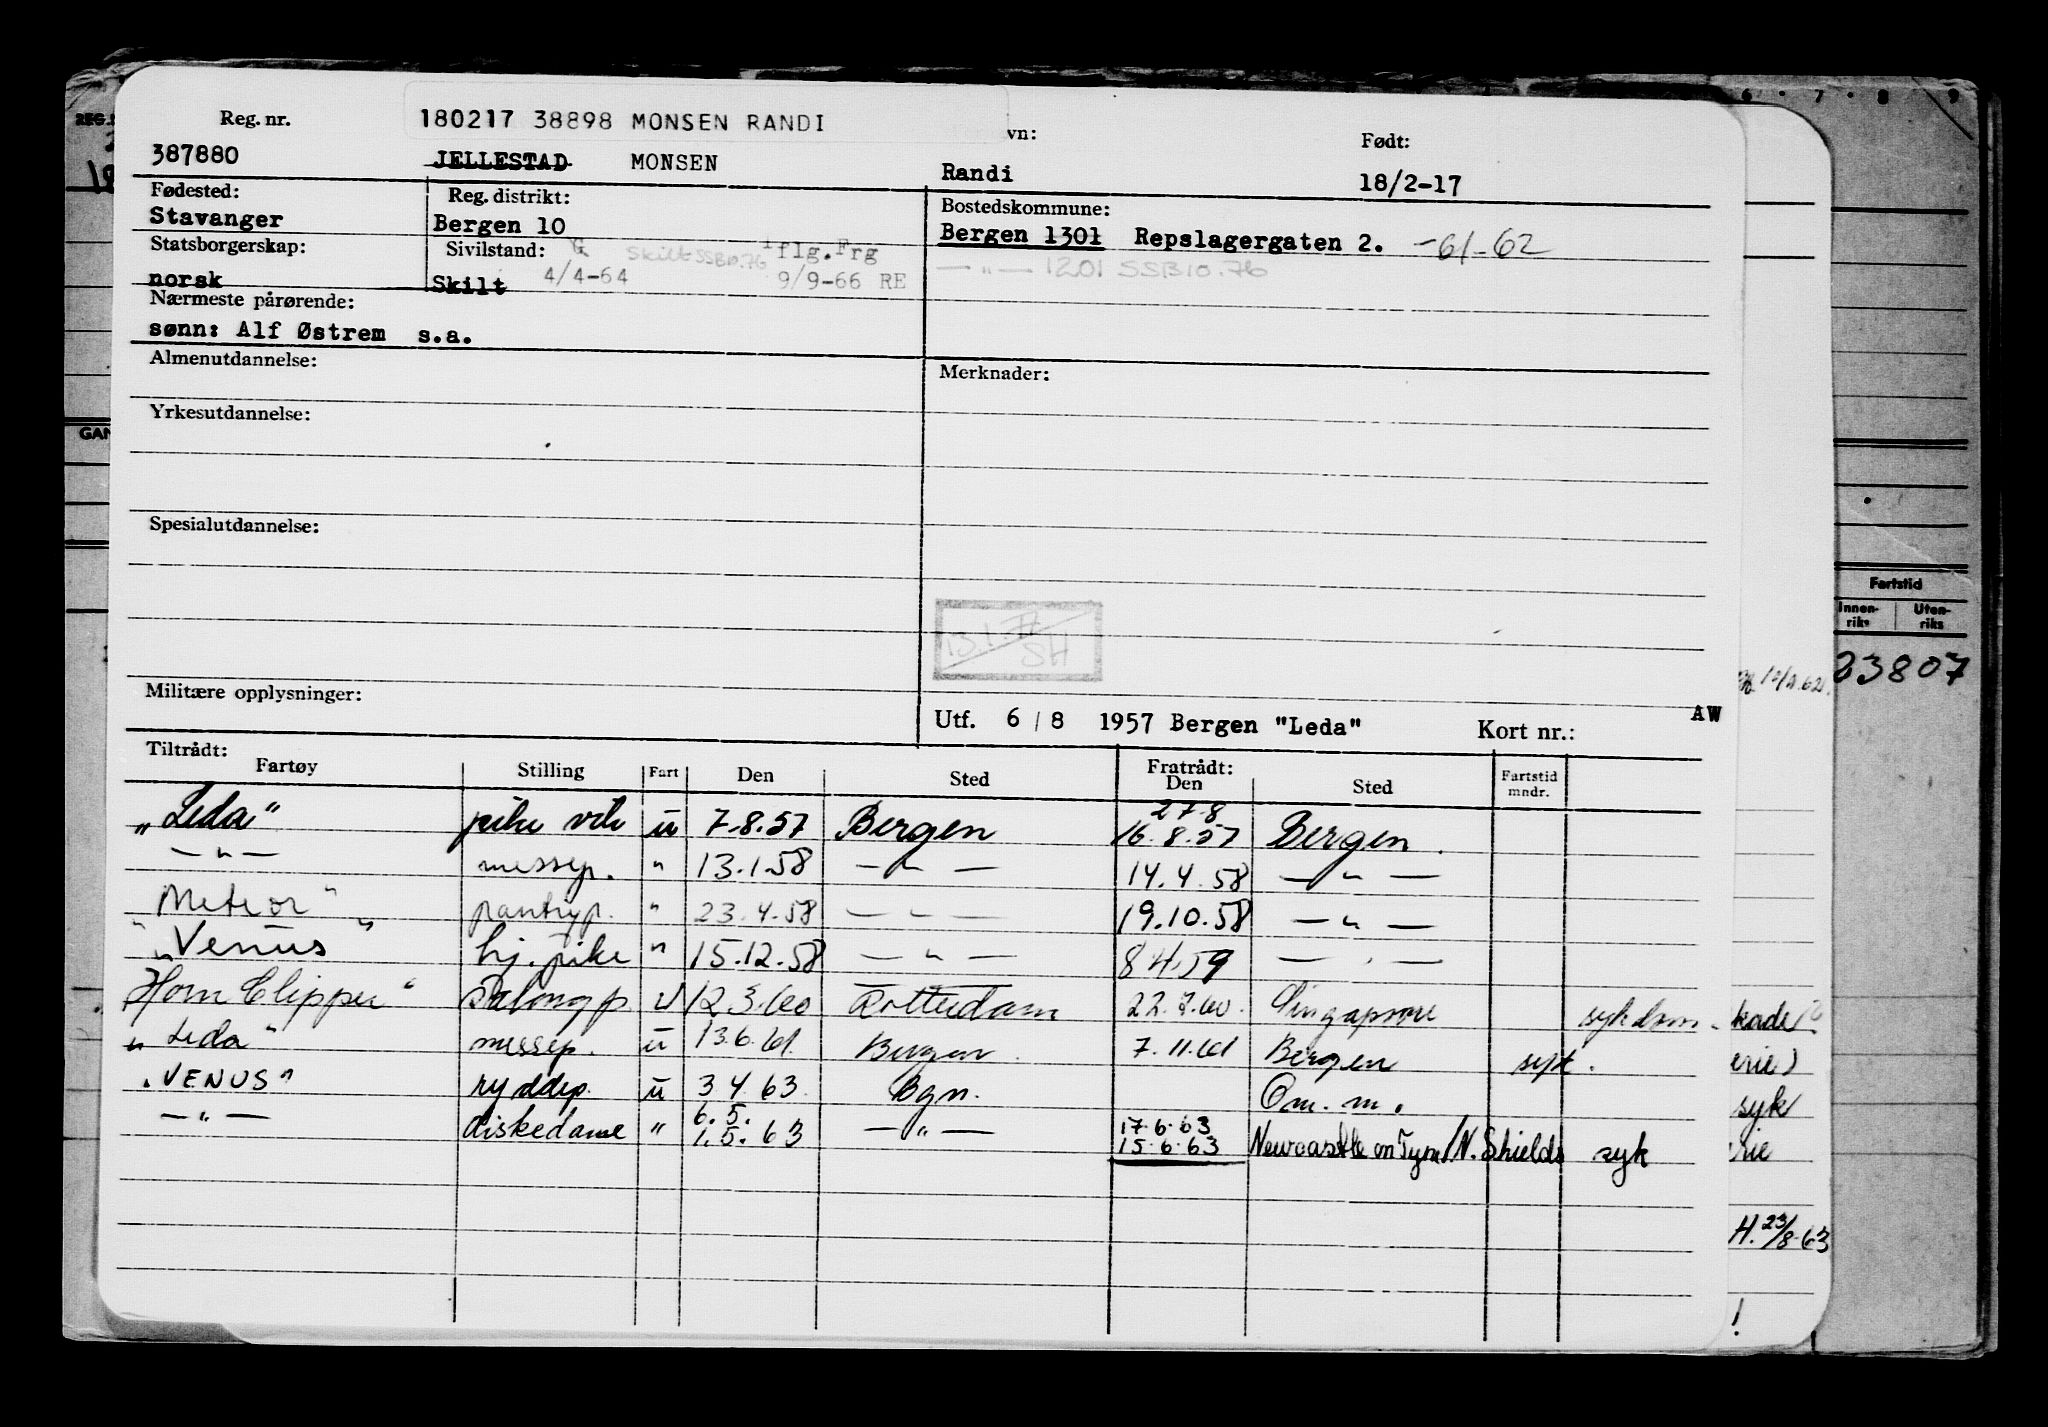 Reg. nr. 180217 38898 MONSEN RANDI vn: Født:
387880 JELLESTAD MONSEN Randi 18/2-17
Fødested: Reg. distrikt: Bostedskommune:
Stavanger Bergen 10 Bergen 1301 Repslagergaten 2. -61-62
Statsborgerskap: Sivilstand: G Skilt SSB10.76 1flg.Frg — " — 1201 SSB10.76
norsk Skilt 4/4-64 9/9-66 RE
Nærmeste pårørende:
sønn: Alf Østrem s.a.
Almenutdannelse: Merknader:
Yrkesutdannelse:
Spesialutdannelse:
13.1.77 SH
Militære opplysninger:
Utf. 6/8 1957 Bergen "Leda" Kort nr.: AW
Tiltrådt: Fratrådt:
Fartøy Stilling Fart Den Sted Den Sted Fartstid mndr.
27-8
"Leda" pike vik u 7.8.57 Bergen 16.8.57 Bergen.
— " — messep. " 13.1.58 — " — 14.4.58 — " —
"Meteor" pantryp. " 23.4.58 — " — 19.10.58 — " —
"Venus" hj. pike " 15.12.58 — " — 8 4.59 — " —
Horn Clipper" Salongp. u 12 3.60 Rotterdam 22.7.60. Singapore sykdom.
"Leda" messep. u 13.6.61. Bergen. 7.11.61 Bergen syk.
"VENUS" ryddep. u 3 4 63. Bgn. Om. m.
6.5. 17.6.63
— " — diskedame " 1.5.63 — " — 15.6.63 Newcastle on Tyne/N. Shields syk
REG.
GAN
6 7 8 9
Fartstid
Innen-riks Uten-riks
23807
syk
H. 23/8-63
!